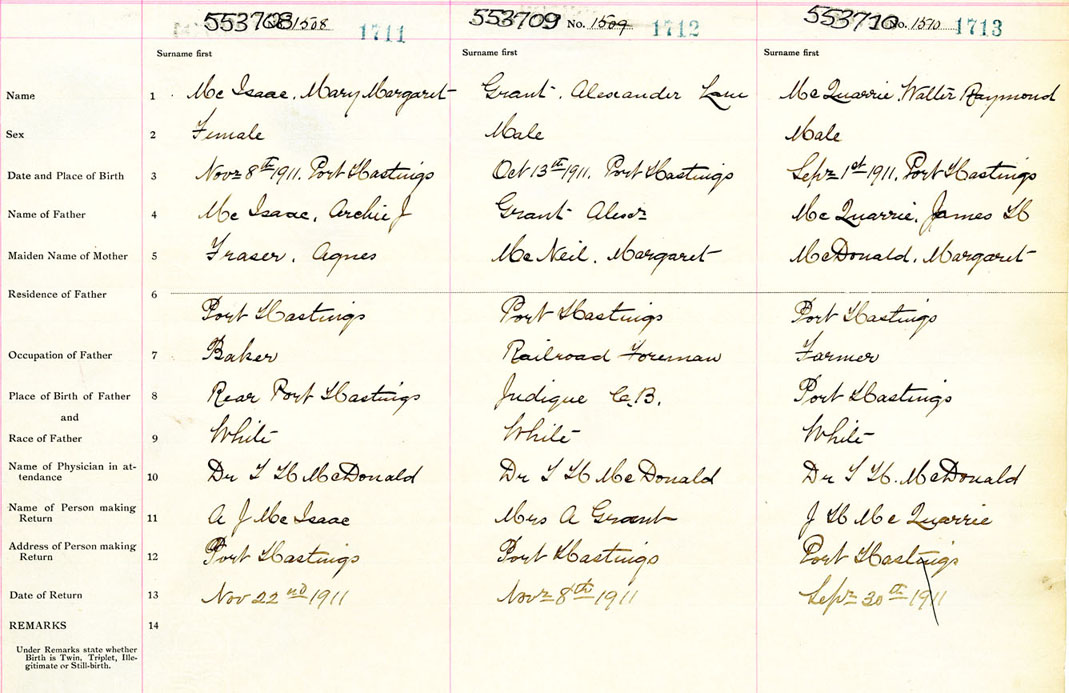 553708 1508 1711 553709 No. 1509 1712 553710 No. 1510 1713
Surname first Surname first Surname first
Name 1 Mc Isaac, Mary Margaret Grant, Alexander Mc Quarrie, Walter Raymond
Sex 2 Female Male Male
Date and Place of Birth 3 Novr 8th 1911, Port Hastings Oct 13th 1911, Port Hastings Sepr 1st 1911, Port Hastings
Name of Father 4 Mc Isaac, Archie J Grant Alexr Mc Quarrie, James H
Maiden Name of Mother 5 Fraser, Agnes Mc Neil, Margaret McDonald, Margaret
Residence of Father 6
Port Hastings Port Hastings Port Hastings
Occupation of Father 7 Baker Railroad Foreman Farmer
Place of Birth of Father 8 Rear Port Hastings Judique C.B. Port Hastings
and
Race of Father 9 White White White
Name of Physician in at-
tendance 10 Dr McDonald Dr McDonald Dr McDonald
Name of Person making
Return 11 A J Mc Isaac Mrs A Grant J H Mc Quarrie
Address of Person making
Return 12 Port Hastings Port Hastings Port Hastings
Date of Return 13 Nov 22nd 1911 Novr 8th 1911 Sepr 30th 1911
REMARKS 14
Under Remarks state whether
Birth is Twin, Triplet, Ille-
gitimate or Still-birth.